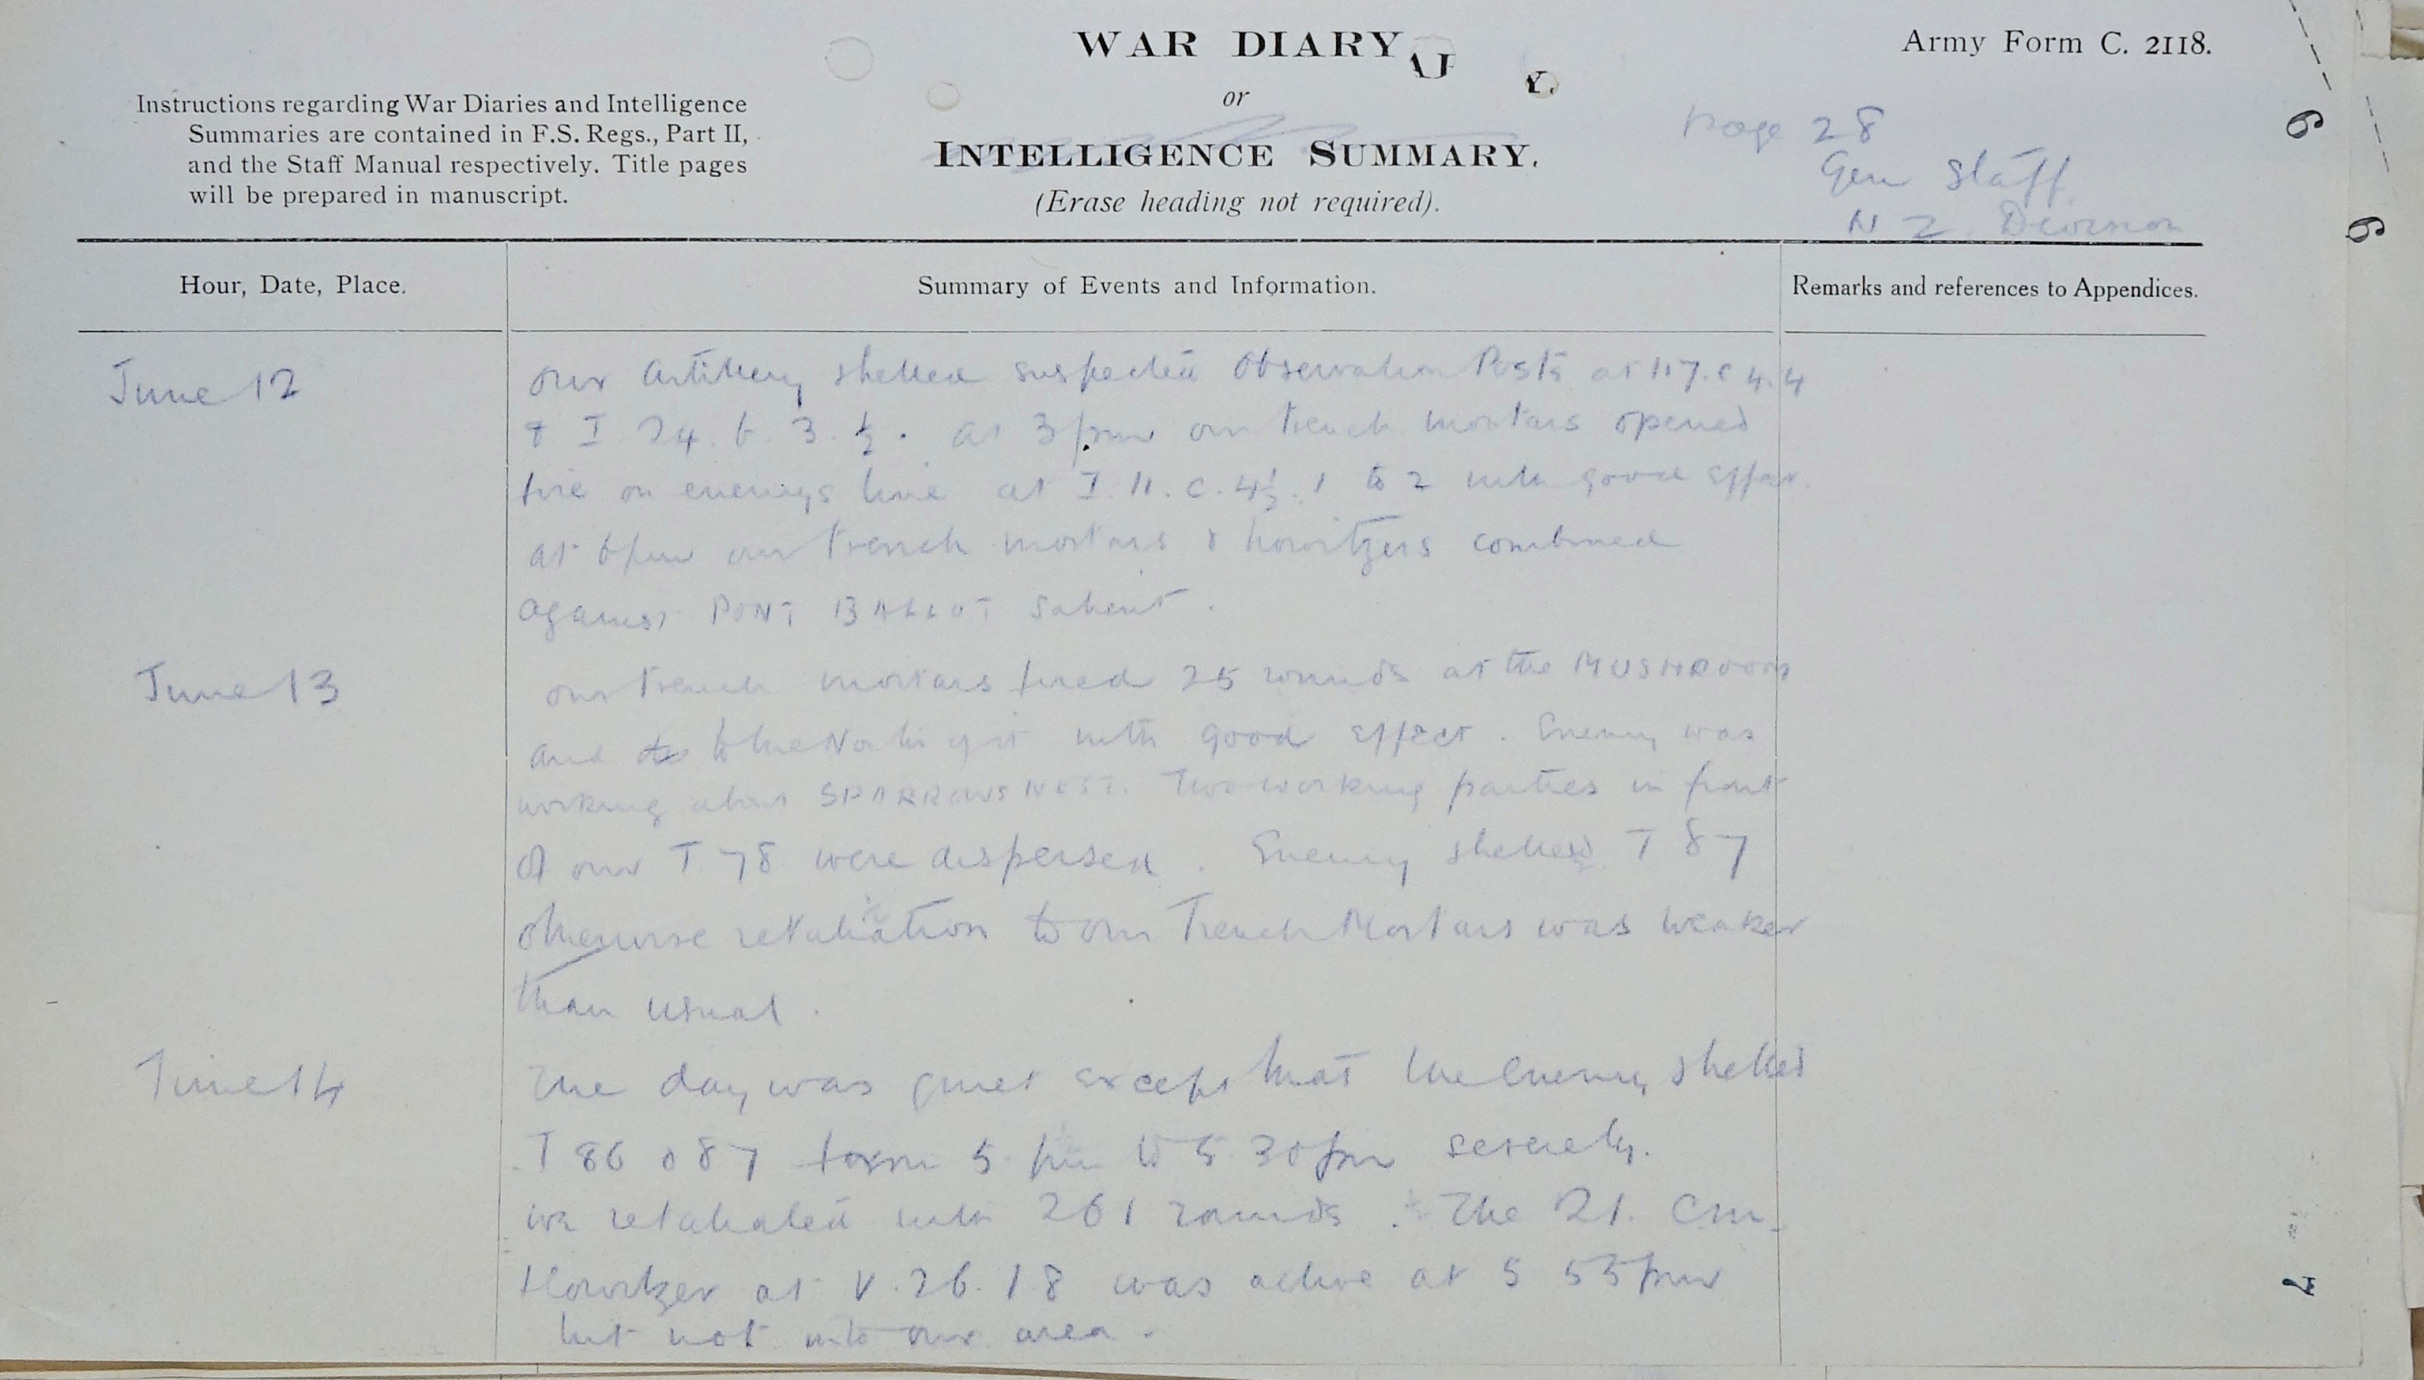 WAR DIARY
or
INTELLIGENCE SUMMARY.
(Erase heading not required).
Army Form C. 2118.
Instructions regarding War Diaries and Intelligence
Summaries are contained in F.S. Regs., Part II,
and the Staff Manual respectively. Title pages
will be prepared in manuscript.
Page 28
Gen Staff
N Z Division
Hour, Date, Place.
Summary of Events and Information.
Remarks and references to Appendices.
June 12
our artillery shelled suspected Observation Posts at
& I 24. b. 3. ½. at 3 pm our trench mortars opened
fire on enemys line at I. 11. c. 4½. 1 to 2 with good effect.
at 6 pm our trench mortars & howitzers combined
against PONT BALLOT salient.
June 13
our trench mortars fired 25 rounds at the MUSHROOM
and with good effect. Enemy was
working about SPARROWS NEST. Two working parties in front
of our T 78 were dispersed. Enemy shelled T 87
otherwise retaliation to our Trench Mortars was weaker
than usual.
June 14
The day was quiet except that the enemy shelled
T 86 & 87 from 5 pm to 5 30 pm severely.
we retaliated with 261 rounds. The 21. cm.
Howitzer at V. 26. 1 8 was active at 5 55 pm
but not into our area.